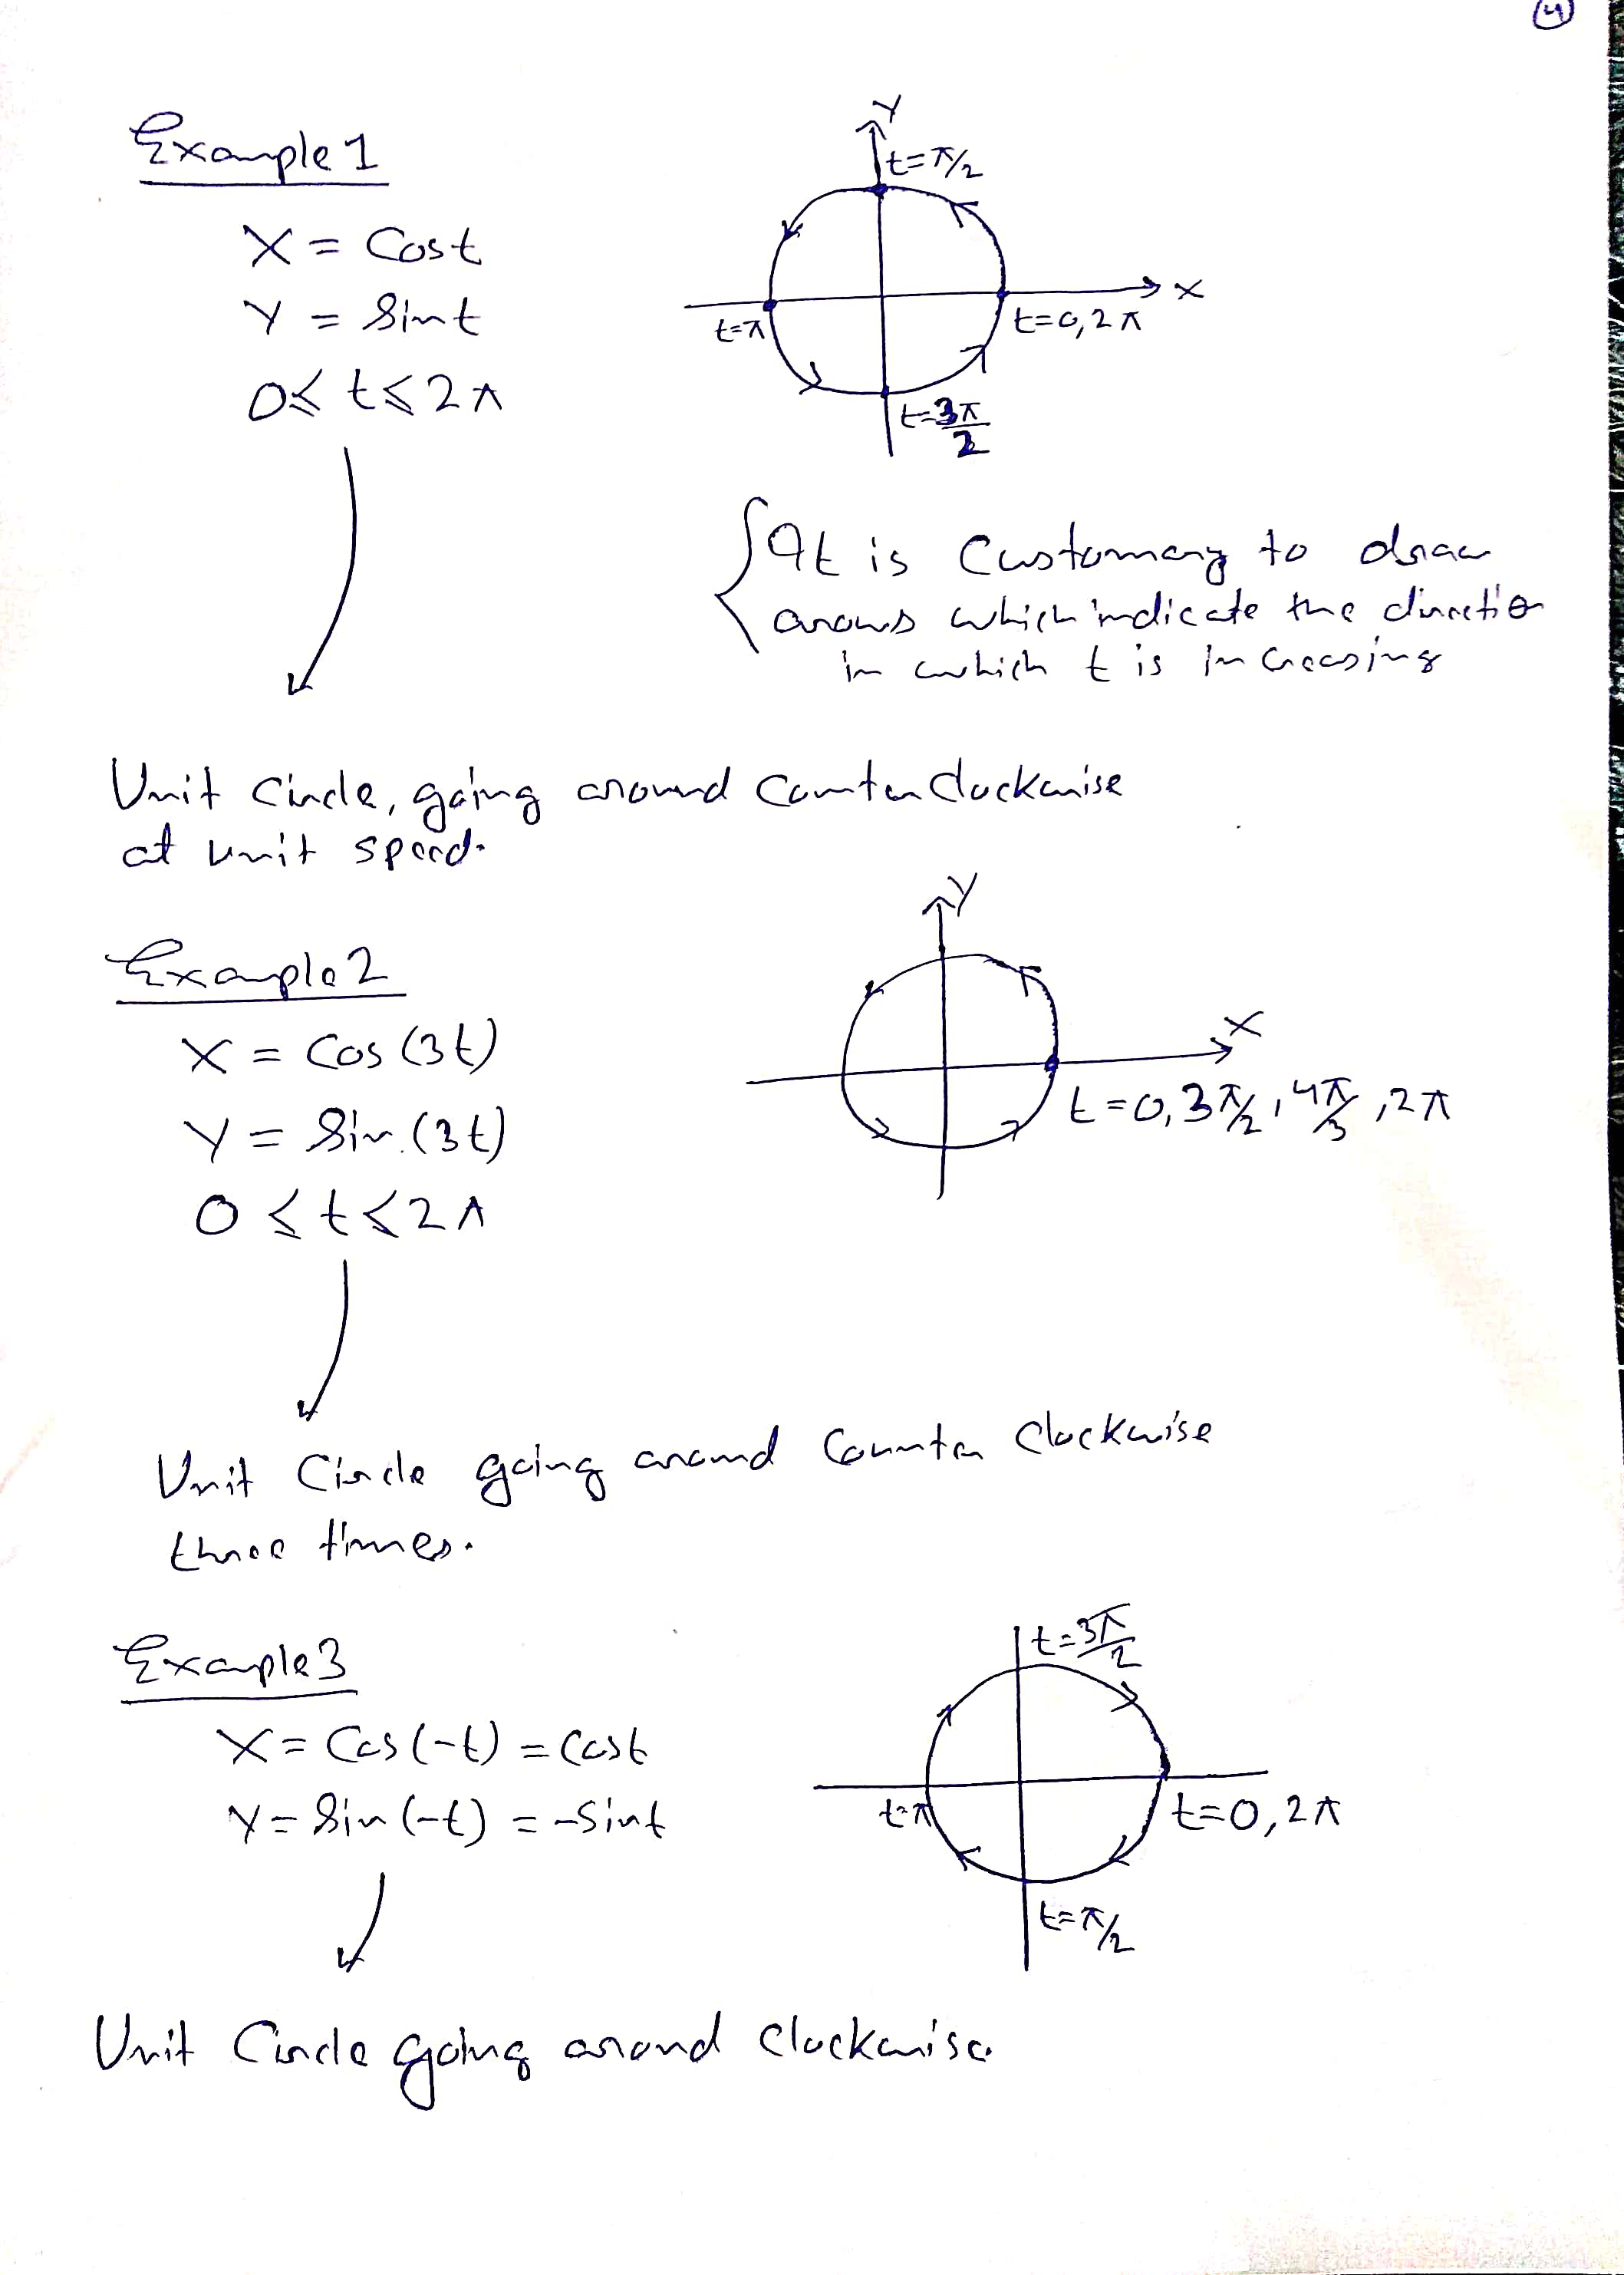 4
Example 1
X = Cost
Y = Sint
0 ≤ t ≤ 2π
Y
t=π/2
X
t=π
t=0, 2π
t=3π/2
It is Customary to draw
arrows which indicate the direction
in which t is increasing
Unit Circle, going around Counter Clockwise
at unit speed.
Example 2
X = Cos (3t)
Y = Sin (3t)
0 ≤ t ≤ 2π
Y
X
t=0, 3π/2, 4π/3, 2π
Unit Circle going around Counter Clockwise
three times.
Example 3
X = Cos(-t) = Cost
Y = Sin (-t) = -Sint
t=3π/2
t=π
t=0, 2π
t=π/2
Unit Circle going around Clockwise